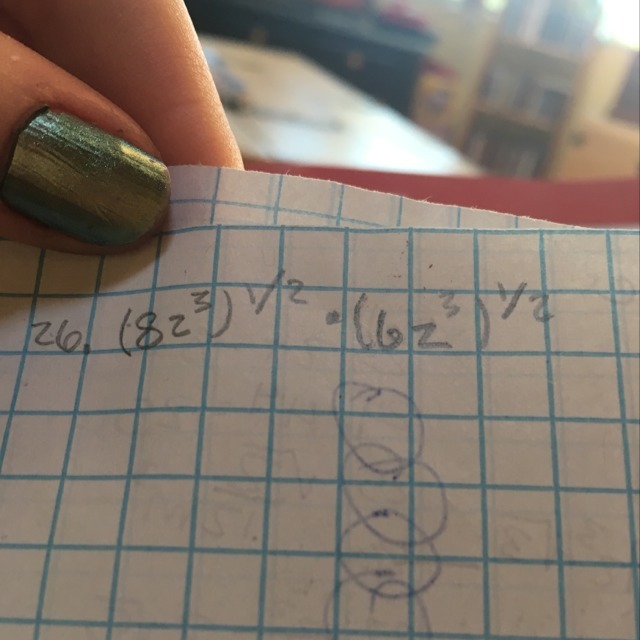 26. (8z³)^1/2 · (6z³)^1/2